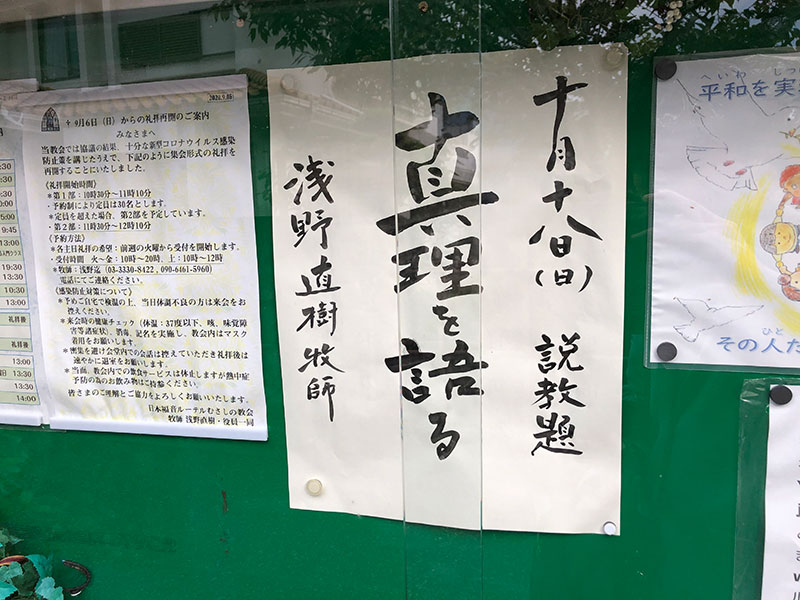 2020.9.06
9月6日(日)からの礼拝再開のご案内
みなさまへ
当教会では協議の結果、十分な新型コロナウイルス感染
防止策を講じたうえで、下記のように集会形式の礼拝を
再開することにいたしました。
(礼拝開始時間)
*第1部:10時30分~11時10分
・予約制により定員は30名とします。
*定員を超えた場合、第2部を予定しています。
・第2部:11時30分~12時10分
(予約方法)
*各主日礼拝の希望:前週の火曜から受付を開始します。
・受付時間 火~金:10時~20時、土:10時~12時
*牧師:浅野迄(03-3330-8422,090-6461-5960)
電話にてご連絡ください。
(感染防止対策について)
*予めご自宅で検温の上、当日体調不良の方は来会をお
控えください。
*来会時の健康チェック(体温:37度以下、咳、味覚障
害等諸症状)、消毒、記名を実施し、教会内はマスク
着用をお願いします。
*密集を避け会堂内での会話は控えていただき礼拝後は
速やかに退室をお願いします。
*当面、教会内での飲食サービスは休止しますが熱中症
予防の為のお飲み物はご持参ください。
皆さまのご理解とご協力をよろしくお願いいたします。
日本福音ルーテルむさしの教会
牧師 浅野直樹・役員一同
十月十八日(日) 説教題
真理を語る
浅野直樹牧師
へいわ
平和を実
ひと
その人た
:30
13:00
19:30
10:30
13:00
礼拝後
礼拝後
13:00
13:30
14:00